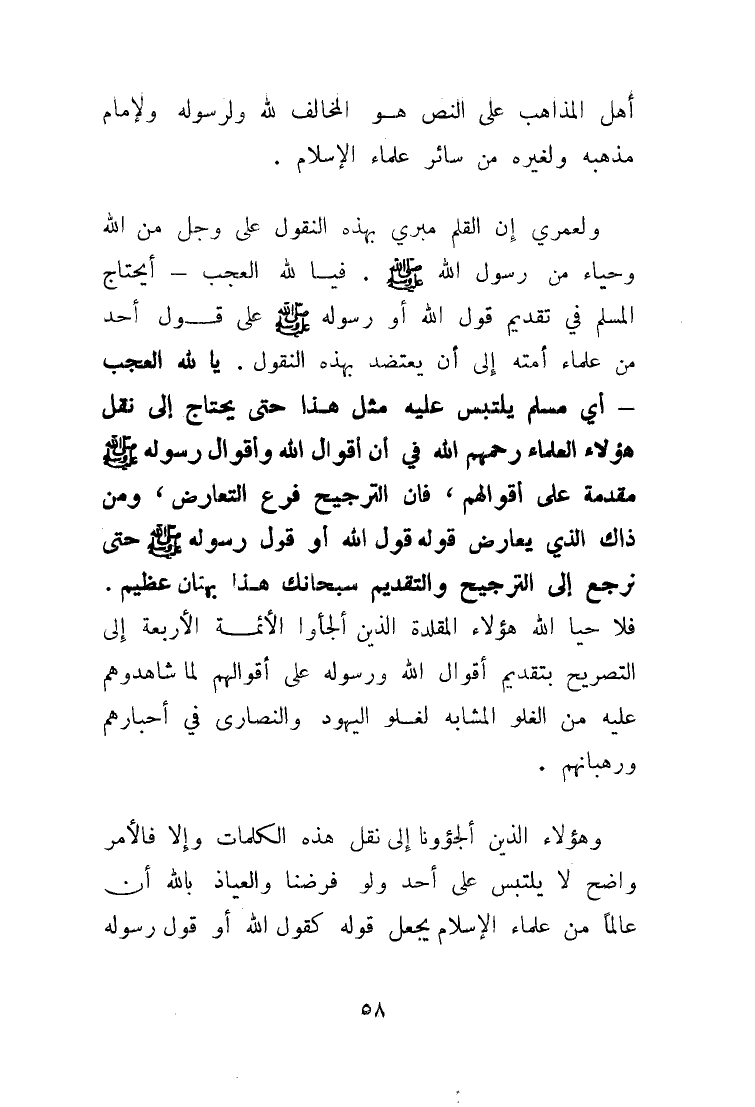 أهل المذاهب على النص هـو المخالف لله ولرسوله ولإمام
مذهبه ولغيره من سائر علماء الإسلام .
ولعمري إن القلم مبري بهذه النقول على وجل من الله
وحياء من رسول الله ﷺ . فيـا لله العجب – أيحتاج
المسلم في تقديم قول الله أو رسوله ﷺ على قـول أحد
من علماء أمته إلى أن يعتضد بهذه النقول . يا لله العجب
– أي مسلم يلتبس عليه مثل هـذا حتى يحتاج إلى نقل
هؤلاء العلماء رحمهم الله في أن أقوال الله وأقوال رسوله ﷺ
مقدمة على أقوالهم ، فان الترجيح فرع التعارض ، ومن
ذاك الذي يعارض قوله قول الله أو قول رسوله ﷺ حتى
نرجع إلى الترجيح والتقديم سبحانك هـذا بهتان عظيم .
فلا حيا الله هؤلاء المقلدة الذين ألجأوا الأئمـة الأربعة إلى
التصريح بتقديم أقوال الله ورسوله على أقوالهم لما شاهدوهم
عليه من الغلو المشابه لغـلو اليهود والنصارى في أحبارهم
ورهبانهم .
وهؤلاء الذين ألجؤونا إلى نقل هذه الكلمات وإلا فالأمر
واضح لا يلتبس على أحد ولو فرضنا والعياذ بالله أن
عالماً من علماء الإسلام يجعل قوله كقول الله أو قول رسوله
٥٨